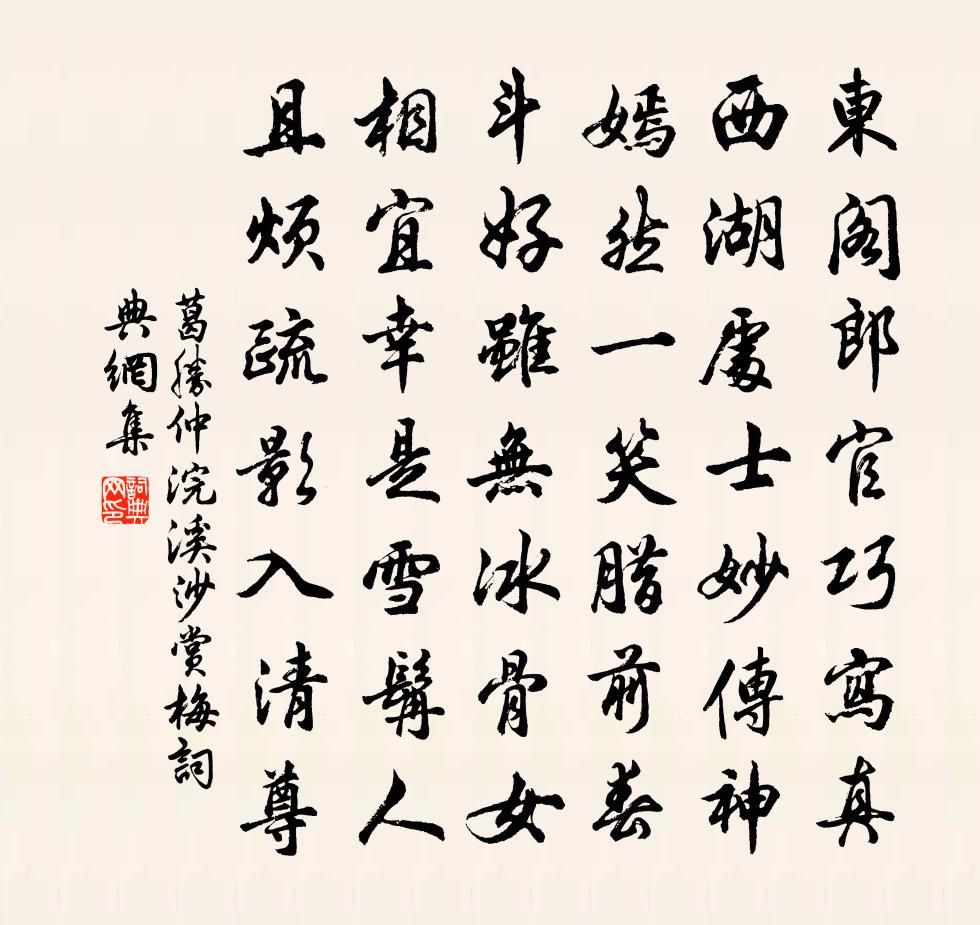 東閣郎官巧寫真
西湖處士妙傳神
嫣然一笑腊前春
斗好雖無冰骨女
相宜幸是雪鬅人
且煩疏影入清尊
葛勝仲浣溪沙賞梅詞
典網集
詞典网印